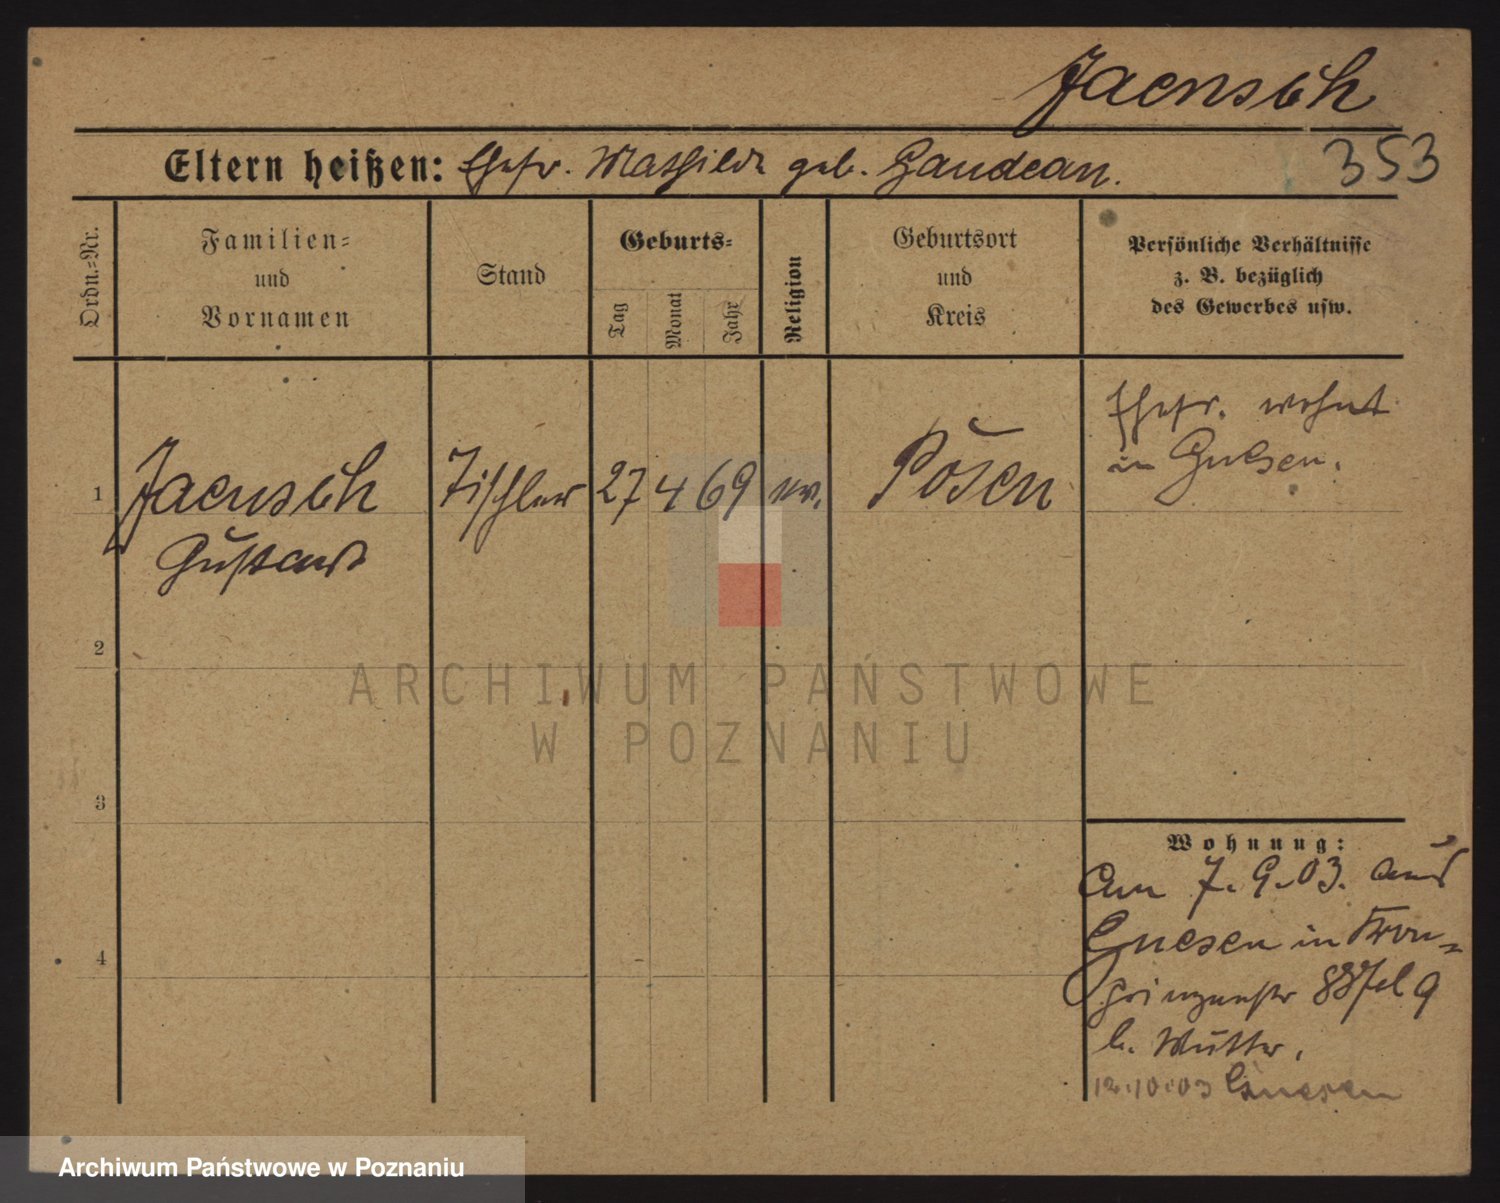 Jaensch
353
Eltern heißen: Ehefr. Mathilde geb. Gaudean.
Ordn.-Nr.
Familien-
und
Vornamen
Stand
Geburts-
Tag
Monat
Jahr
Religion
Geburtsort
und
Kreis
Persönliche Verhältnisse
z. B. bezüglich
des Gewerbes usw.
1
Jaensch
Gustav
Tischler
27 4 69
ev.
Posen
Ehefr. wohnt
in Gnesen.
2
3
4
Wohnung:
Am 7. 9. 03. aus
Gnesen in Kron-
prinzenstr
b. Mutter.
12.10.03 Gnesen
ARCHIWUM PAŃSTWOWE
W POZNANIU
Archiwum Państwowe w Poznaniu